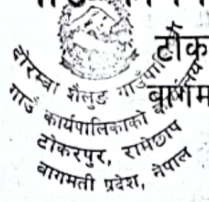 टोक
बागम
दोरम्बा शैलुङ गाउँपा
गाउँ कार्यपालिकाको
टोकरपुर, रामेछाप
बागमती प्रदेश, नेपाल